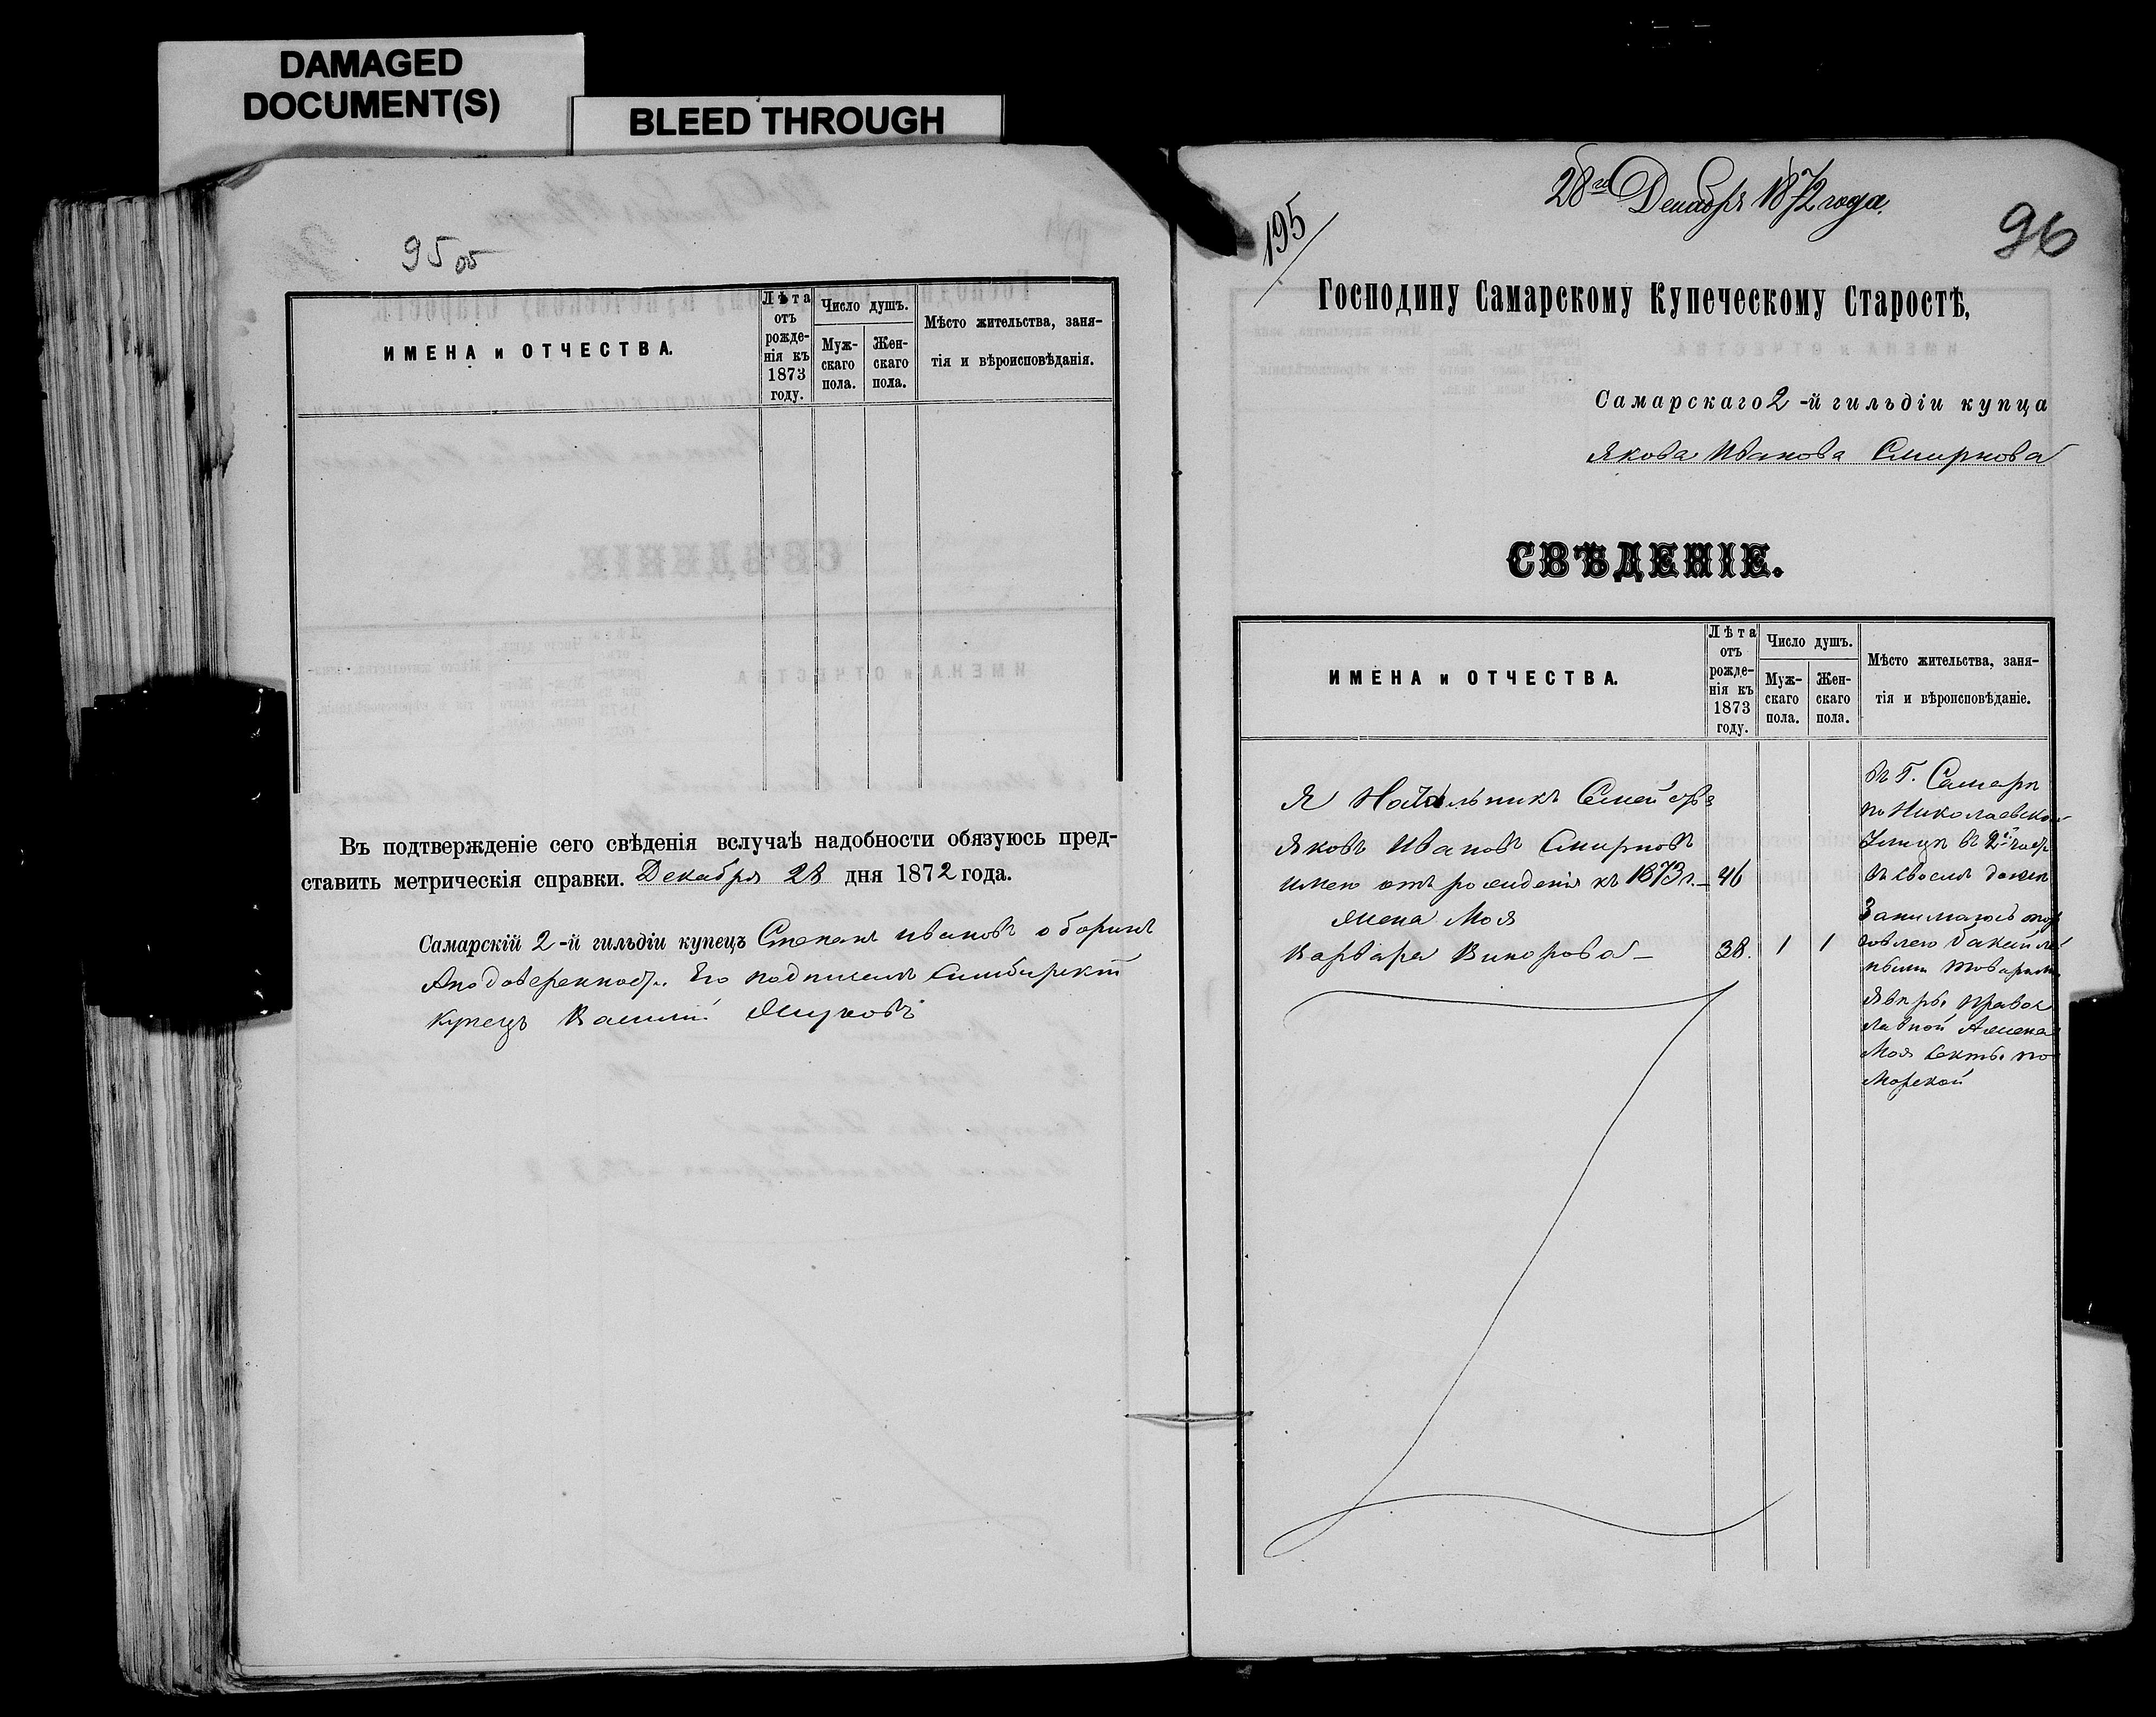 DAMAGED
DOCUMENT(S)
BLEED THROUGH
95 об
ИМЕНА и ОТЧЕСТВА.
Лѣта отъ рожденія къ 1873 году.
Число душъ.
Мужскаго пола.
Женскаго пола.
Мѣсто жительства, заня-
тія и вѣроисповѣданія.
Въ подтвержденіе сего свѣденія вслучаѣ надобности обязуюсь пред-
ставить метрическія справки. Декабря 28 дня 1872 года.
Самарскій 2-й гильдіи купецъ Степанъ Ивановъ
Его подписалъ Симбирскій
купецъ Василій
28го Декабря 1872 года.
195
96
Господину Самарскому Купеческому Старостѣ,
Самарскаго 2-й гильдіи купца
Якова Иванова Смирнова
СВѢДЕНІЕ.
ИМЕНА и ОТЧЕСТВА.
Лѣта
отъ
рожде-
нія къ
1873
году.
Число душъ.
Муж-
скаго
пола.
Жен-
скаго
пола.
Мѣсто жительства, заня-
тія и вѣроисповѣданіе.
Я Начальникъ Семейства
Яковъ Ивановъ Смирновъ
имею отъ рождения къ 1873 г. 46
жена Моя
Варвара 38. 1 1
въ Г. Самаре
по Николаевской
Улице в 2й части
въ своемъ доме
Занимаюсь тор
говлею бакалей
ными товарами
Я веры правос
лавной А жена
Моя секты по
морской